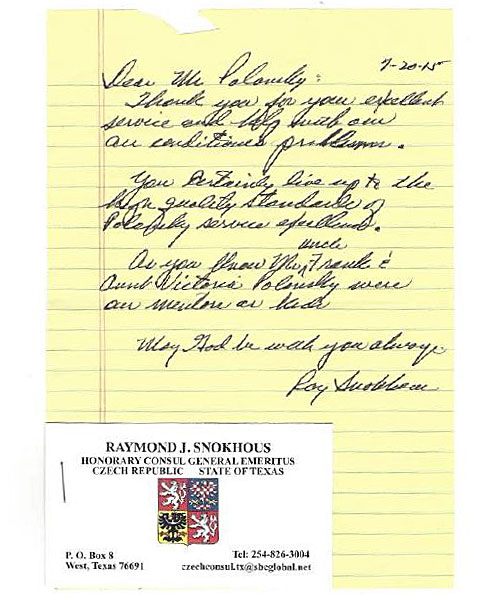 7-20-15
Dear Mr Polansky:
Thank you for your excellent
service and help with our
air conditioner problems.
You certainly live up to the
high quality standards of
Polansky service excellence.
As you know My, Frank &
uncle
Aunt Victoria Polansky were
our mentors as kids
May God be with you always.
Ray Snokhous
RAYMOND J. SNOKHOUS
HONORARY CONSUL GENERAL EMERITUS
CZECH REPUBLIC STATE OF TEXAS
P. O. Box 8
West, Texas 76691
Tel: 254-826-3004
czechconsul.tx@sbcglobal.net